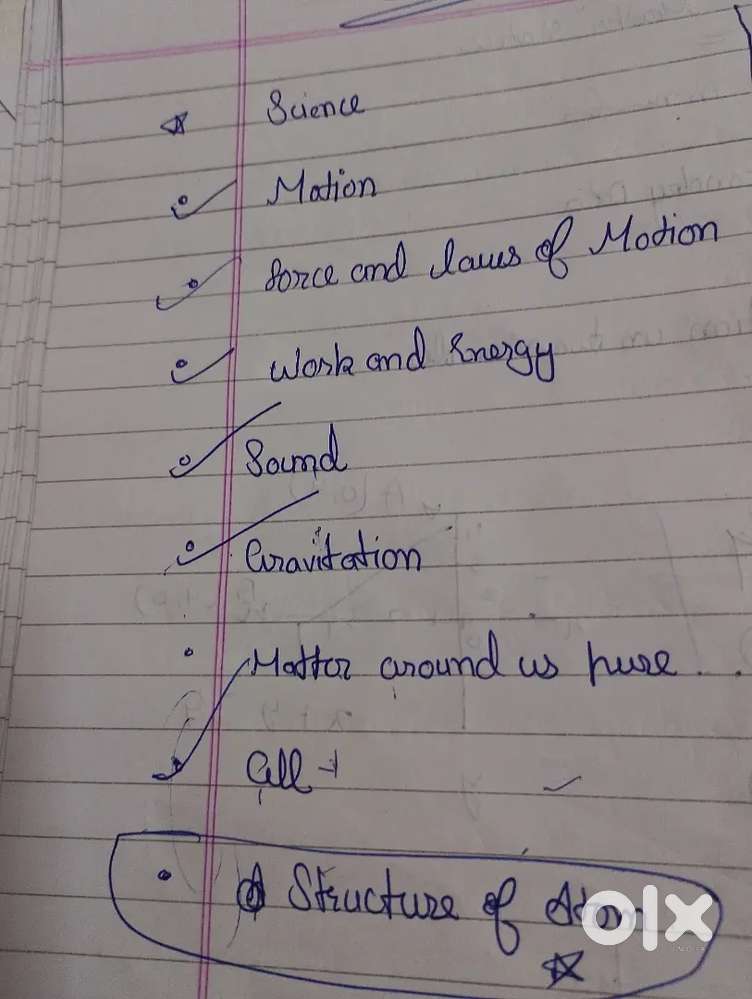 Science
Motion
force and laws of Motion
Work and Energy
Sound
Gravitation
Matter around us pure ..
Cell
Structure of Atom
olx